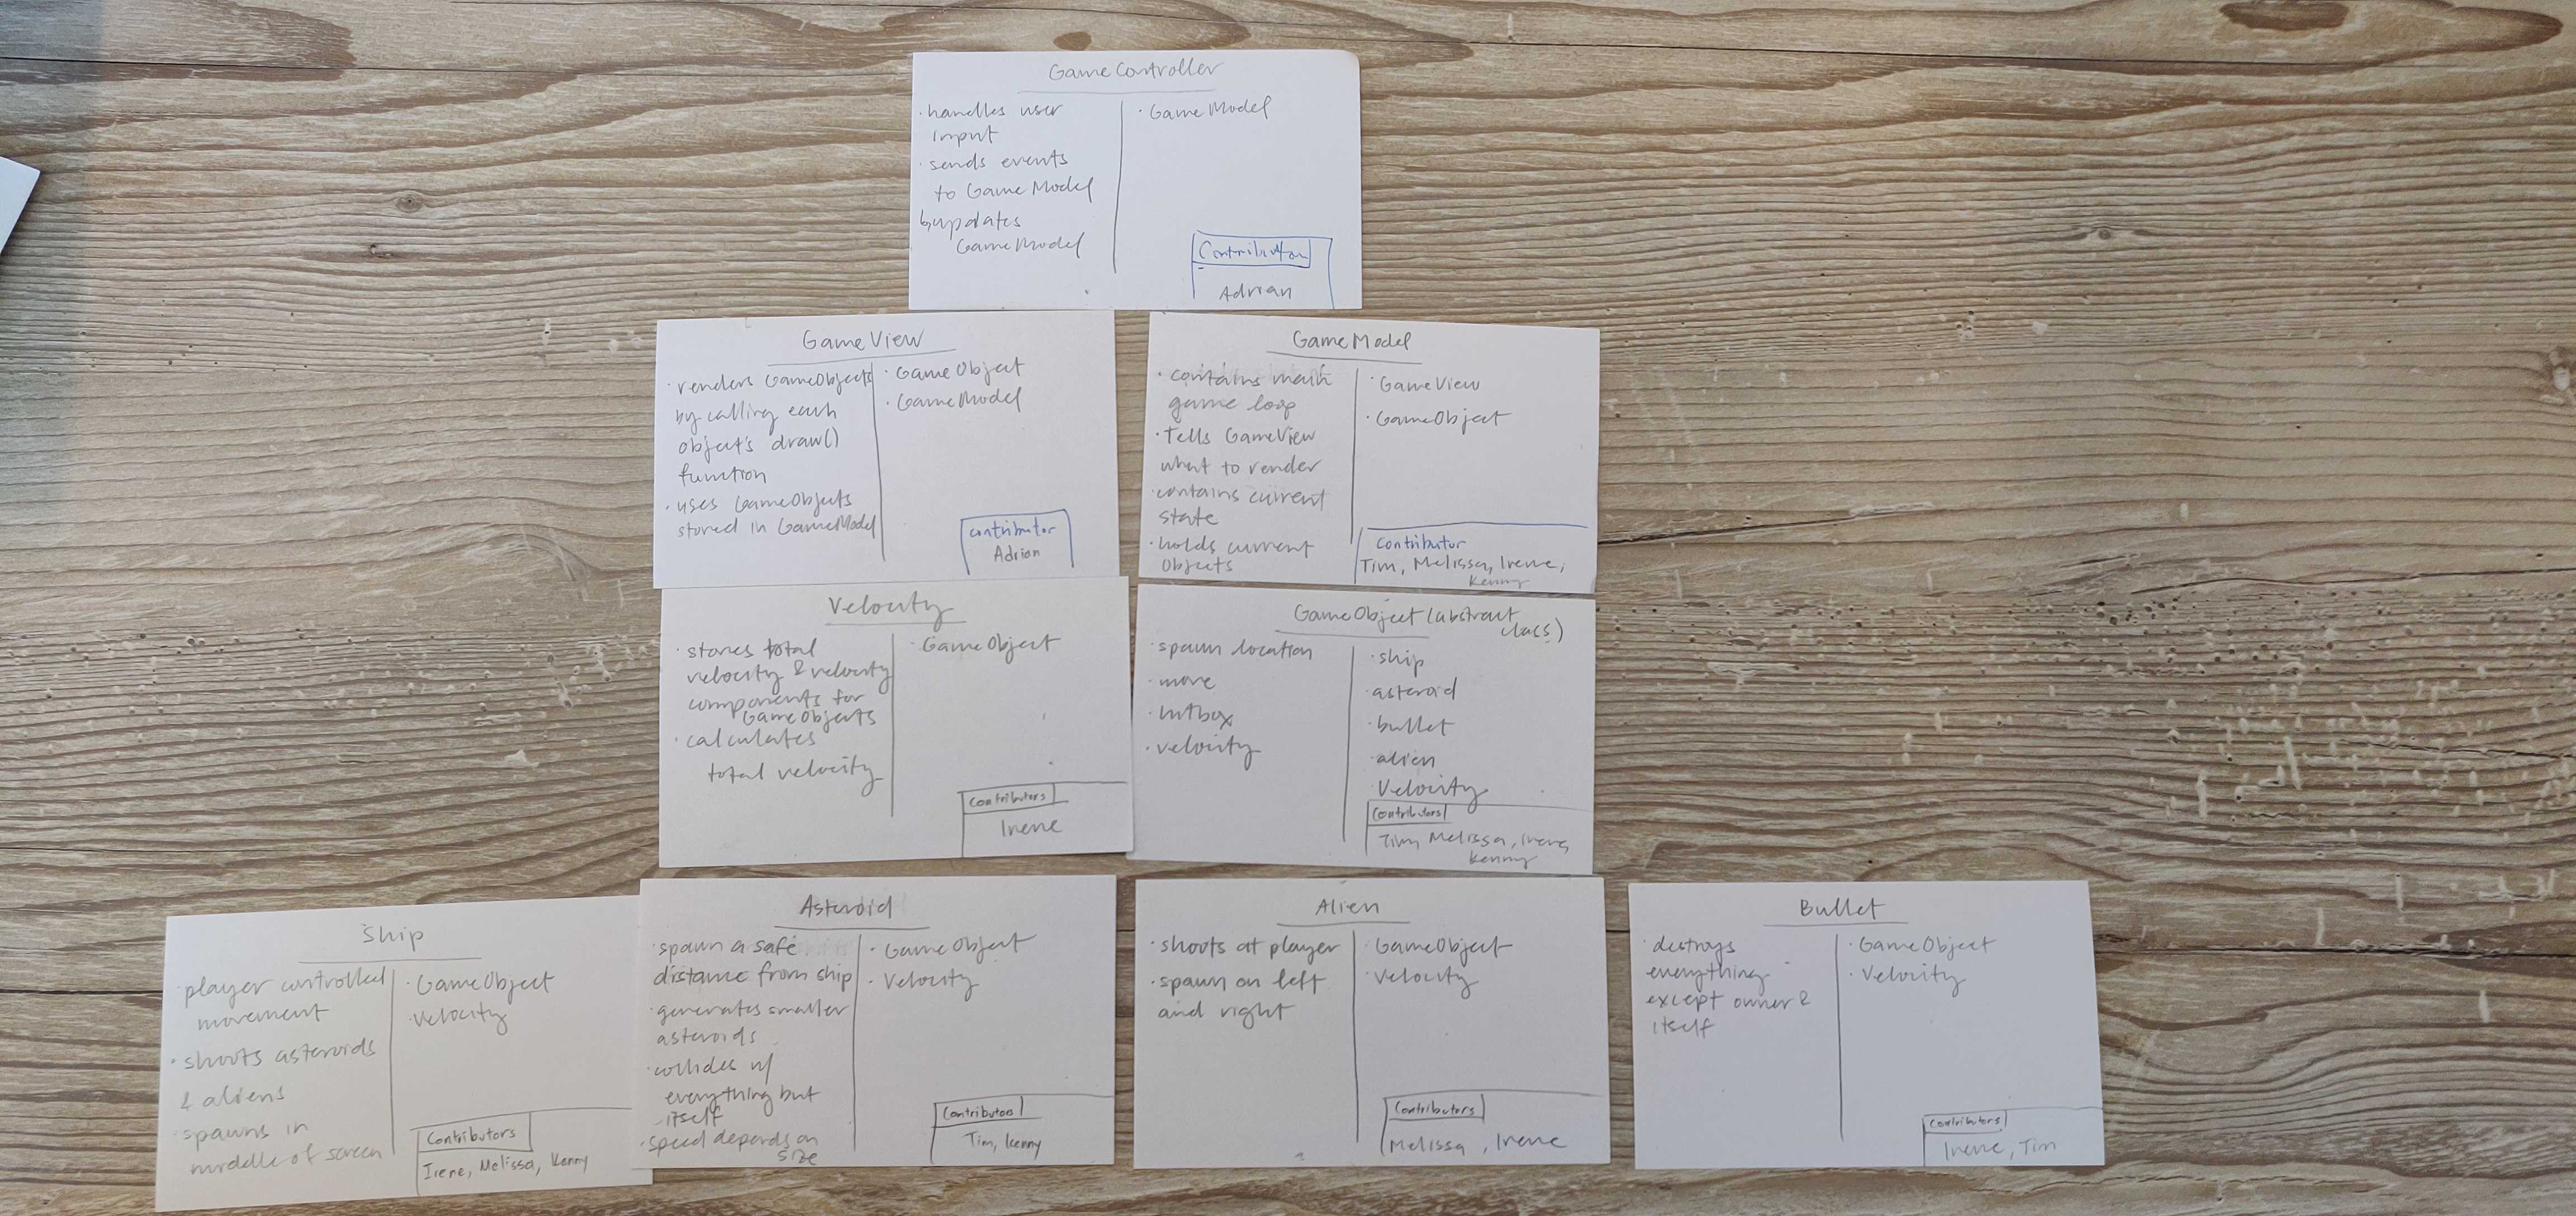 GameController
· handles user
input
· sends events
to GameModel
↳updates
GameModel
· GameModel
Contributor
Adrian
GameView
· renders GameObjects
by calling each
object's draw()
function
· uses GameObjects
stored in GameModel
· GameObject
· GameModel
contributor
Adrian
GameModel
· contains main
game loop
· Tells GameView
what to render
· contains current
state
· holds current
objects
· GameView
· GameObject
contributor
Tim, Melissa, Irene,
Kenny
Velocity
· stores total
velocity & velocity
components for
GameObjects
· calculates
total velocity
· GameObject
Contributors
Irene
GameObject (abstract
class)
· spawn location
· move
· hitbox
· velocity
· ship
· asteroid
· bullet
· alien
· Velocity
Contributors
Tim, Melissa, Irene,
Kenny
Ship
· player controlled
movement
· shoots asteroids
& aliens
· spawns in
middle of screen
· GameObject
· Velocity
Contributors
Irene, Melissa, Kenny
Asteroid
· spawn a safe
distance from ship
· generates smaller
asteroids
· collides w/
everything but
itself
· speed depends on
size
· GameObject
· Velocity
Contributors
Tim, Kenny
Alien
· shoots at player
· spawn on left
and right
· GameObject
· Velocity
Contributors
Melissa, Irene
Bullet
· destroys
everything
except owner &
itself
· GameObject
· Velocity
Contributors
Irene, Tim